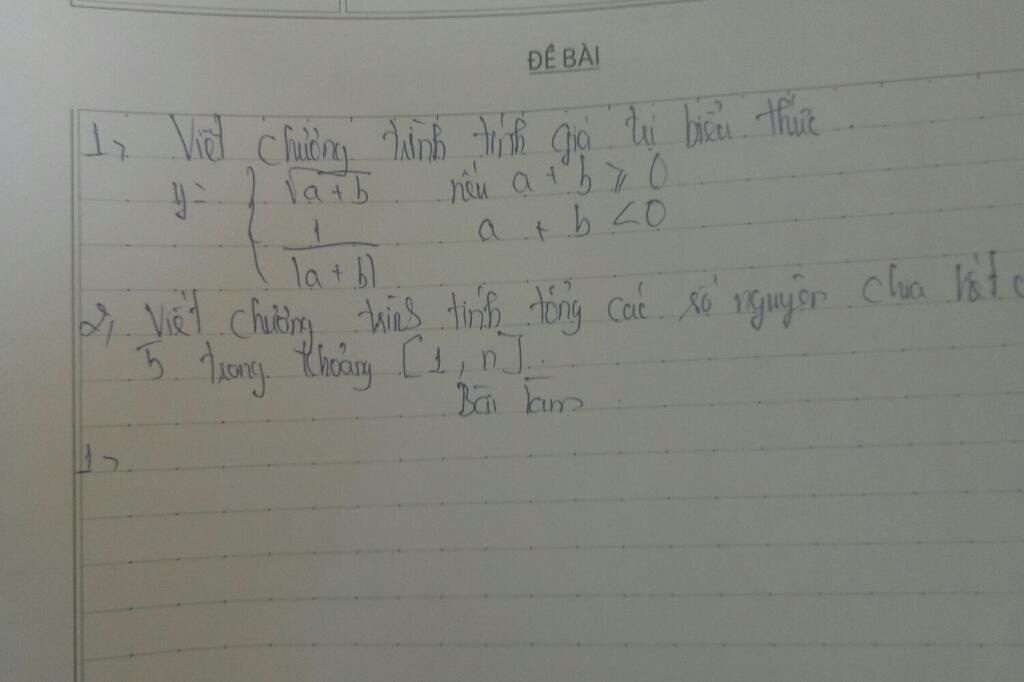 ĐỀ BÀI
1, Viết chương trình tính giá trị biểu thức
y = { √(a + b) nếu a + b ≥ 0
1/|a + b| a + b < 0
2, Viết chương trình tính tổng các số nguyên chia hết
5 trong khoảng [1, n].
Bài làm
1,